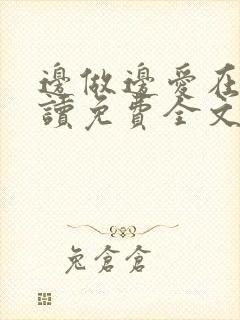 邊做邊愛在
讀免費全文
兔倉倉